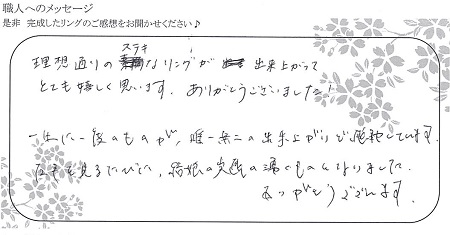 職人へのメッセージ
是非 完成したリングのご感想をお聞かせください♪
ステキ
理想通りの なリングが 出来上がって
とても嬉しく思います。ありがとうございました!
一生に一度のものが、唯一無二の出来上がりで感動しています。
を見るたびに、結婚の実感の湧くものになりました。
ありがとうございます。